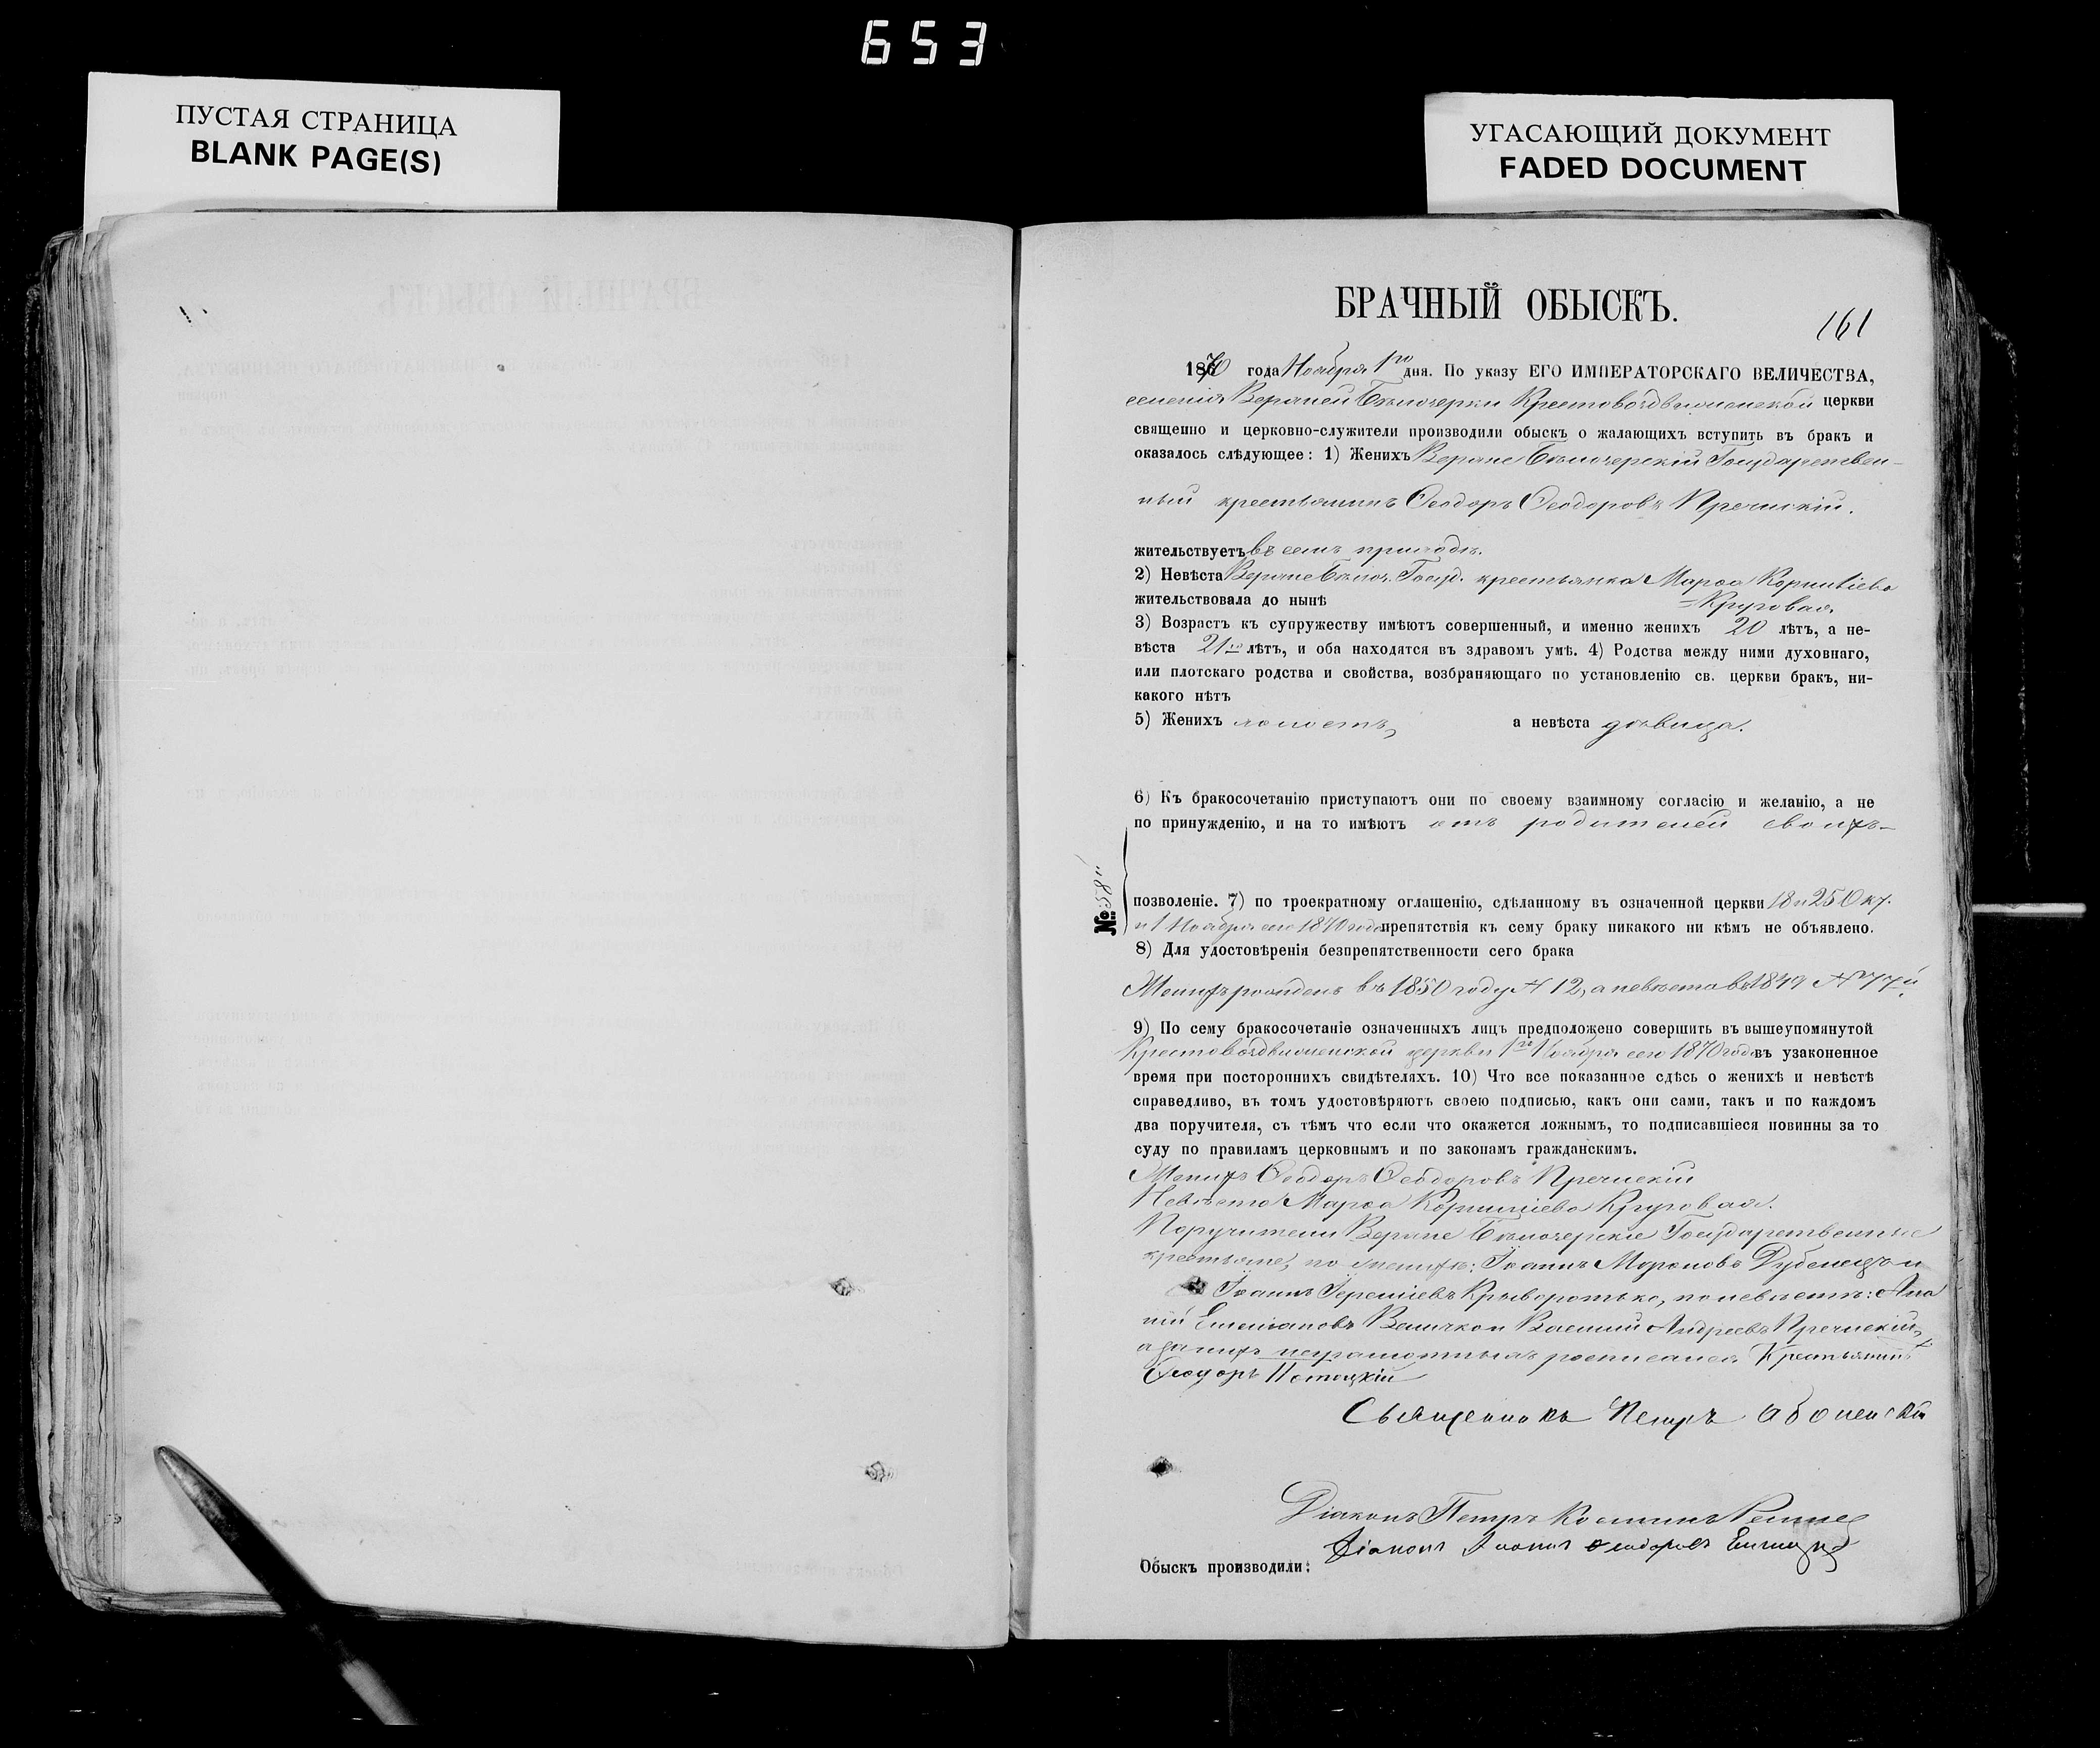 653
ПУСТАЯ СТРАНИЦА
BLANK PAGE(S)
УГАСАЮЩИЙ ДОКУМЕНТ
FADED DOCUMENT
БРАЧНЫЙ ОБЫСКЪ.
161
1870 года Ноября 1го дня. По указу ЕГО ИМПЕРАТОРСКАГО ВЕЛИЧЕСТВА,
селенія Верхней Бѣлозерки Крестовоздвиженской церкви
священно и церковно-служители производили обыскъ о жалающихъ вступить въ бракъ и
оказалось слѣдующее: 1) Женихъ Верхне Бѣлозерскій Государствен-
ный крестьянинъ Ѳеодоръ Ѳеодоровъ Пречискій.
жительствуетъ въ семъ приходѣ.
2) Невѣста Верхне Бѣлоз. Госуд. крестьянка Марѳа Корниліева
жительствовала до нынѣ =Круговая.
3) Возрастъ къ супружеству имѣютъ совершенный, и именно женихъ 20 лѣтъ, а не-
вѣста 21го лѣтъ, и оба находятся въ здравомъ умѣ. 4) Родства между ними духовнаго,
или плотскаго родства и свойства, возбраняющаго по установленію св. церкви бракъ, ни-
какого нѣтъ
5) Женихъ холостъ, а невѣста дѣвица.
6) Къ бракосочетанію приступаютъ они по своему взаимному согласію и желанію, а не
по принужденію, и на то имѣютъ отъ родителей своихъ-
№ 58й
позволеніе. 7) по троекратному оглашенію, сдѣланному въ означенной церкви 18 и 25 Ок.
и 1 Ноября сего 1870 года препятствія къ сему браку никакого ни кѣмъ не объявлено.
8) Для удостовѣренія безпрепятственности сего брака
Женихъ рожденъ въ 1850 году № 12, а невѣста въ 1849 № 77й
9) По сему бракосочетаніе означенныхъ лицъ предположено совершить въ вышеупомянутой
Крестовоздвиженской церкви 1го Ноября сего 1870 года въ узаконенное
время при постороннихъ свидѣтеляхъ. 10) Что все показанное сдѣсь о женихѣ и невѣстѣ
справедливо, въ томъ удостовѣряютъ своею подписью, какъ они сами, такъ и по каждомъ
два поручителя, съ тѣмъ что если что окажется ложнымъ, то подписавшіеся повинны за то
суду по правиламъ церковнымъ и по законамъ гражданскимъ.
Женихъ Ѳеодоръ Ѳеодоровъ Пречискій
Невѣста Марѳа Корниліева Круговая.
Поручители Верхне Бѣлозерскіе Государственные
крестьяне, по женихѣ: Іоаннъ Дубенецъ и
Іоаннъ Іереміевъ Криворотько, по невѣстѣ: Ана
ній Емельяновъ Величко и Василій Андреевъ Пречискій,
а за нихъ неграмотныхъ росписался Крестьянинъ
Ѳеодоръ Потоцкій
Священникъ Петръ
Діаконъ Петръ Косминъ
Діаконъ Іоаннъ Ѳеодоровъ
Обыскъ производили: